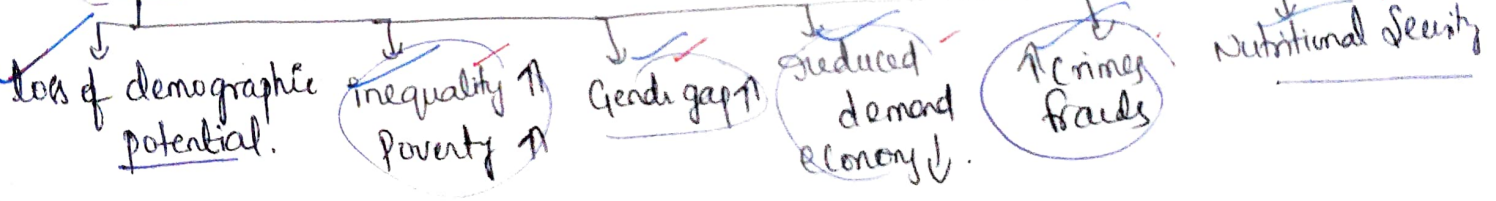 loss of demographic
potential.
inequality ⇑
Poverty ⇑
Gende gap ⇑
reduced
demand
economy ↓.
⇑ Crimes
frauds
Nutritional Security